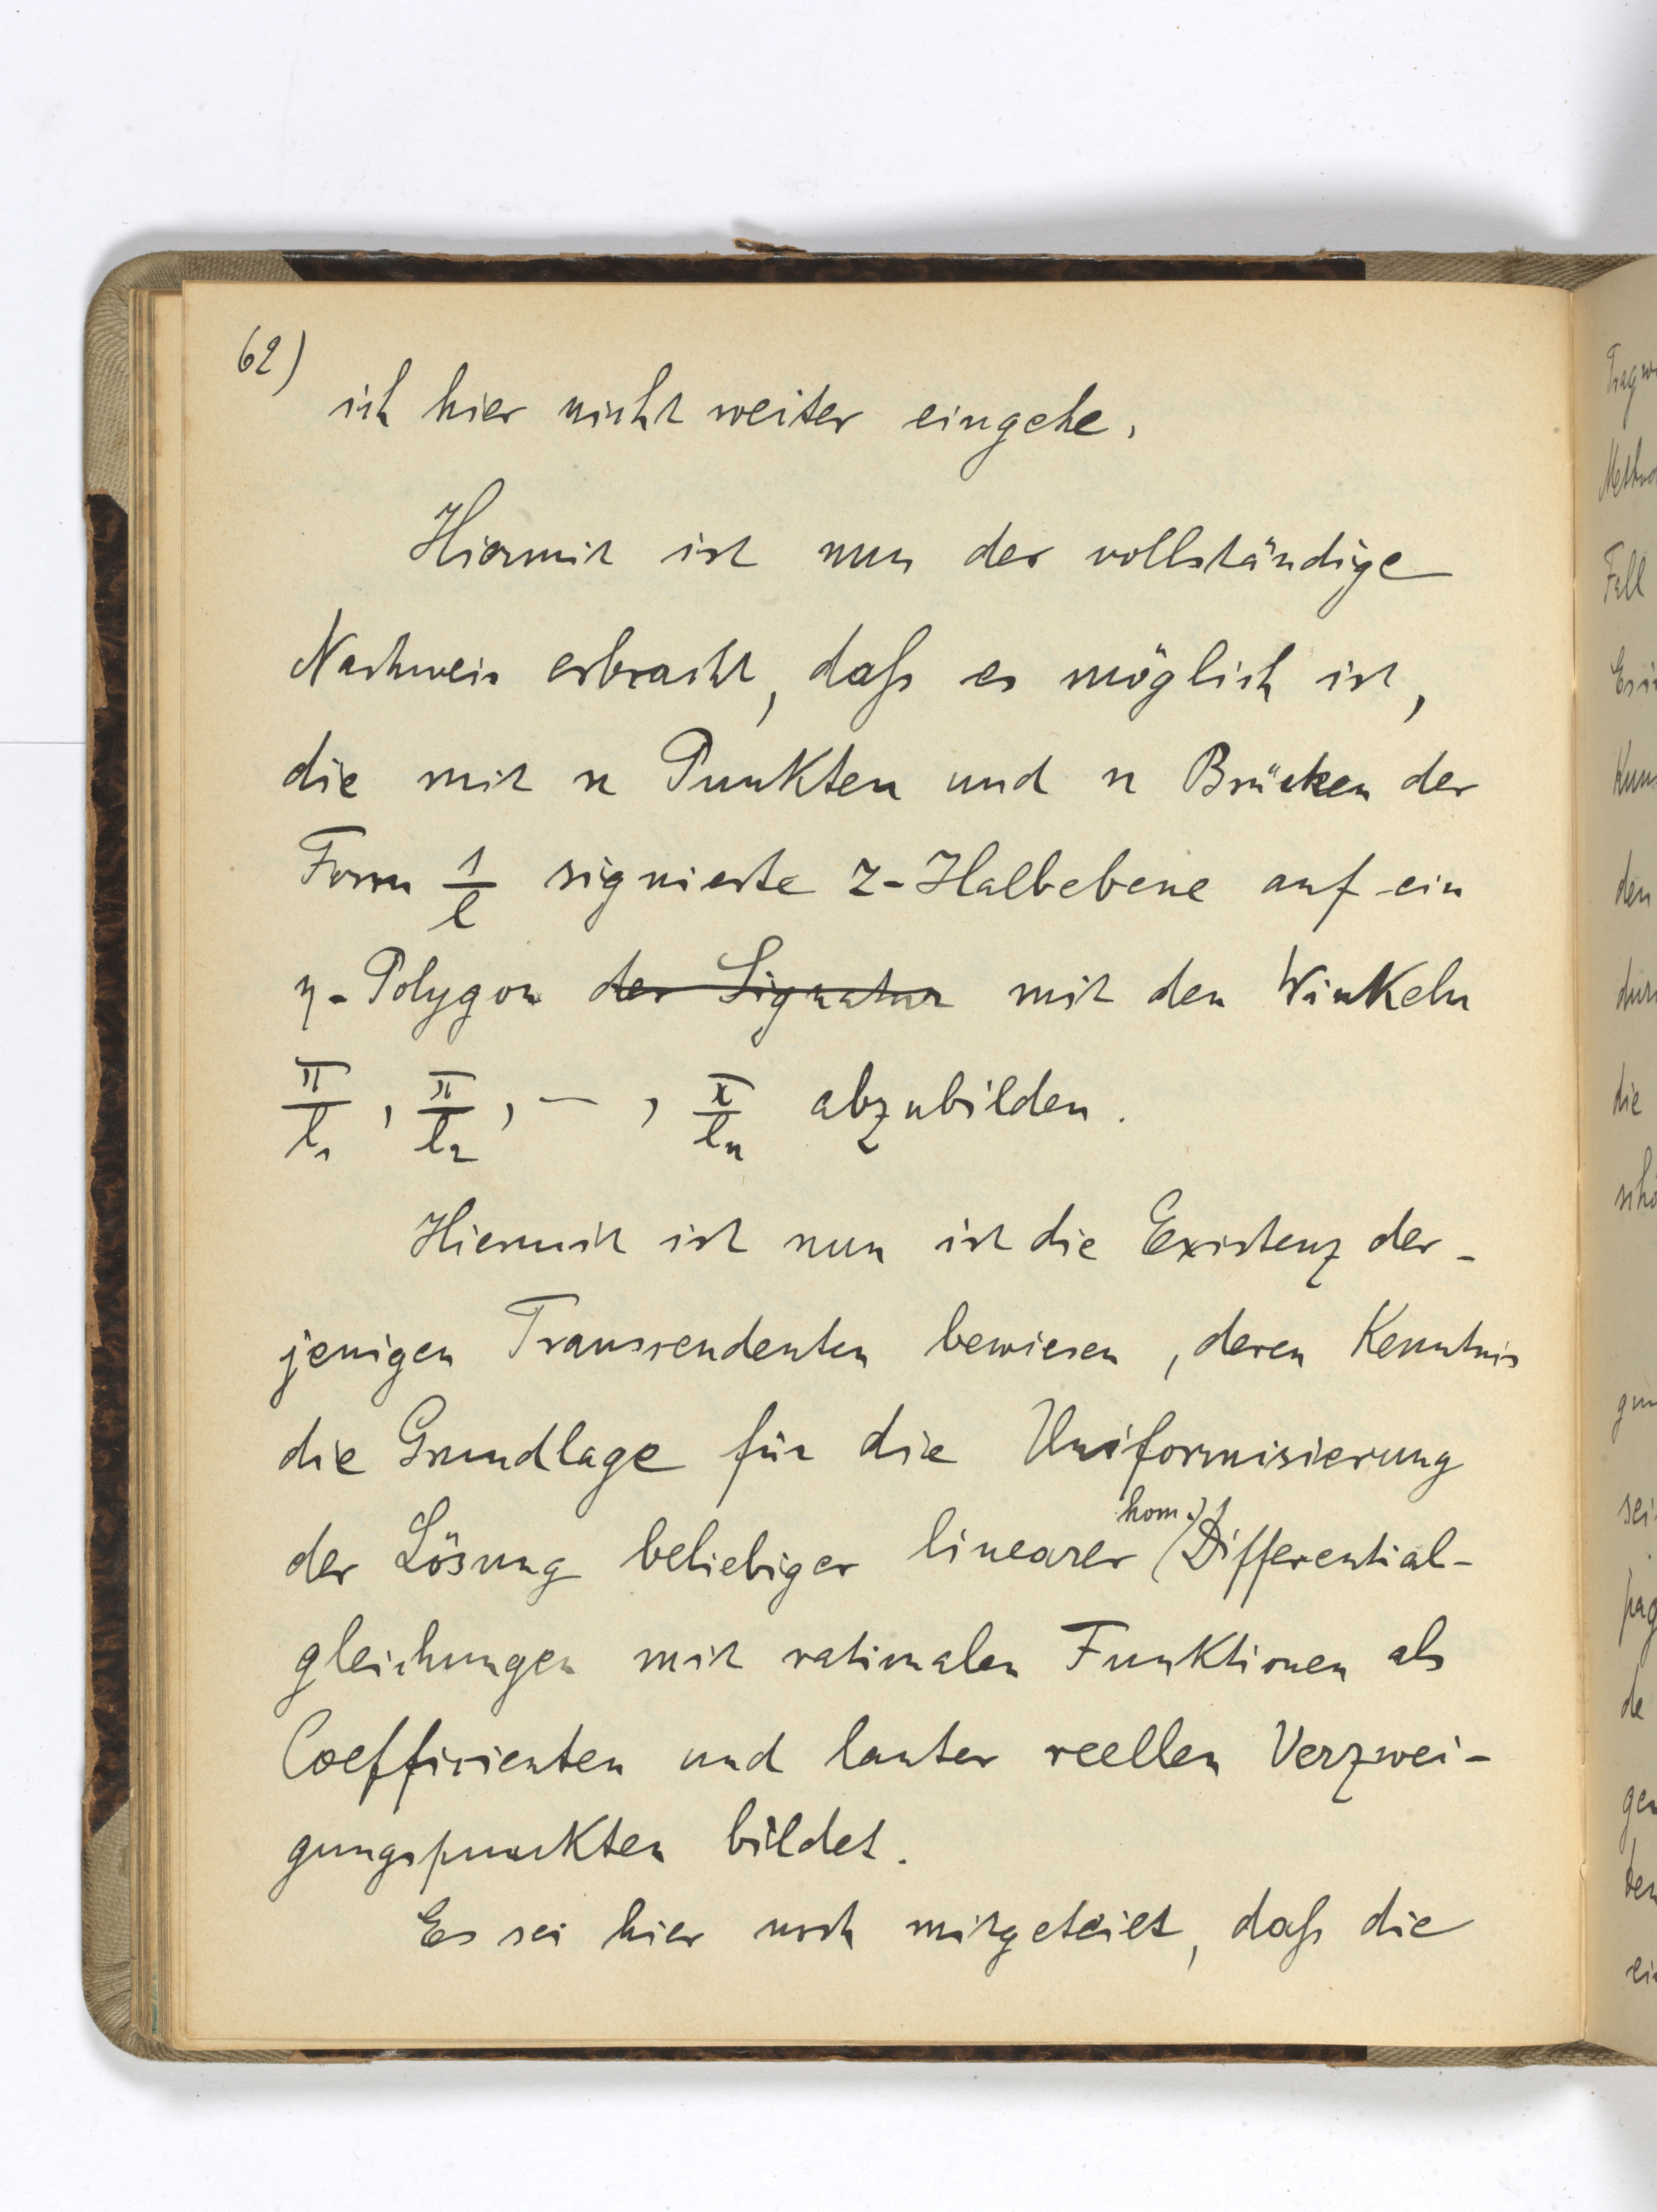 62)
ich hier nicht weiter eingehe.
Hiermit ist nun der vollständige
Nachweis erbracht, daß es möglich ist,
die mit n Punkten und n Brücken der
Form 1/l signierte z-Halbebene auf ein
η-Polygon der Signatur mit den Winkeln
π/l₁, π/l₂, — , π/lₙ abzubilden.
Hiermit ist nun ist die Existenz der-
jenigen Transcendenten bewiesen, deren Kenntnis
die Grundlage für die Uniformisierung
hom.
der Lösung beliebiger linearer Differential-
gleichungen mit rationalen Funktionen als
Coefficienten und lauter reellen Verzwei-
gungspunkten bildet.
Es sei hier noch mitgeteilt, daß die
Fall
den
die
de